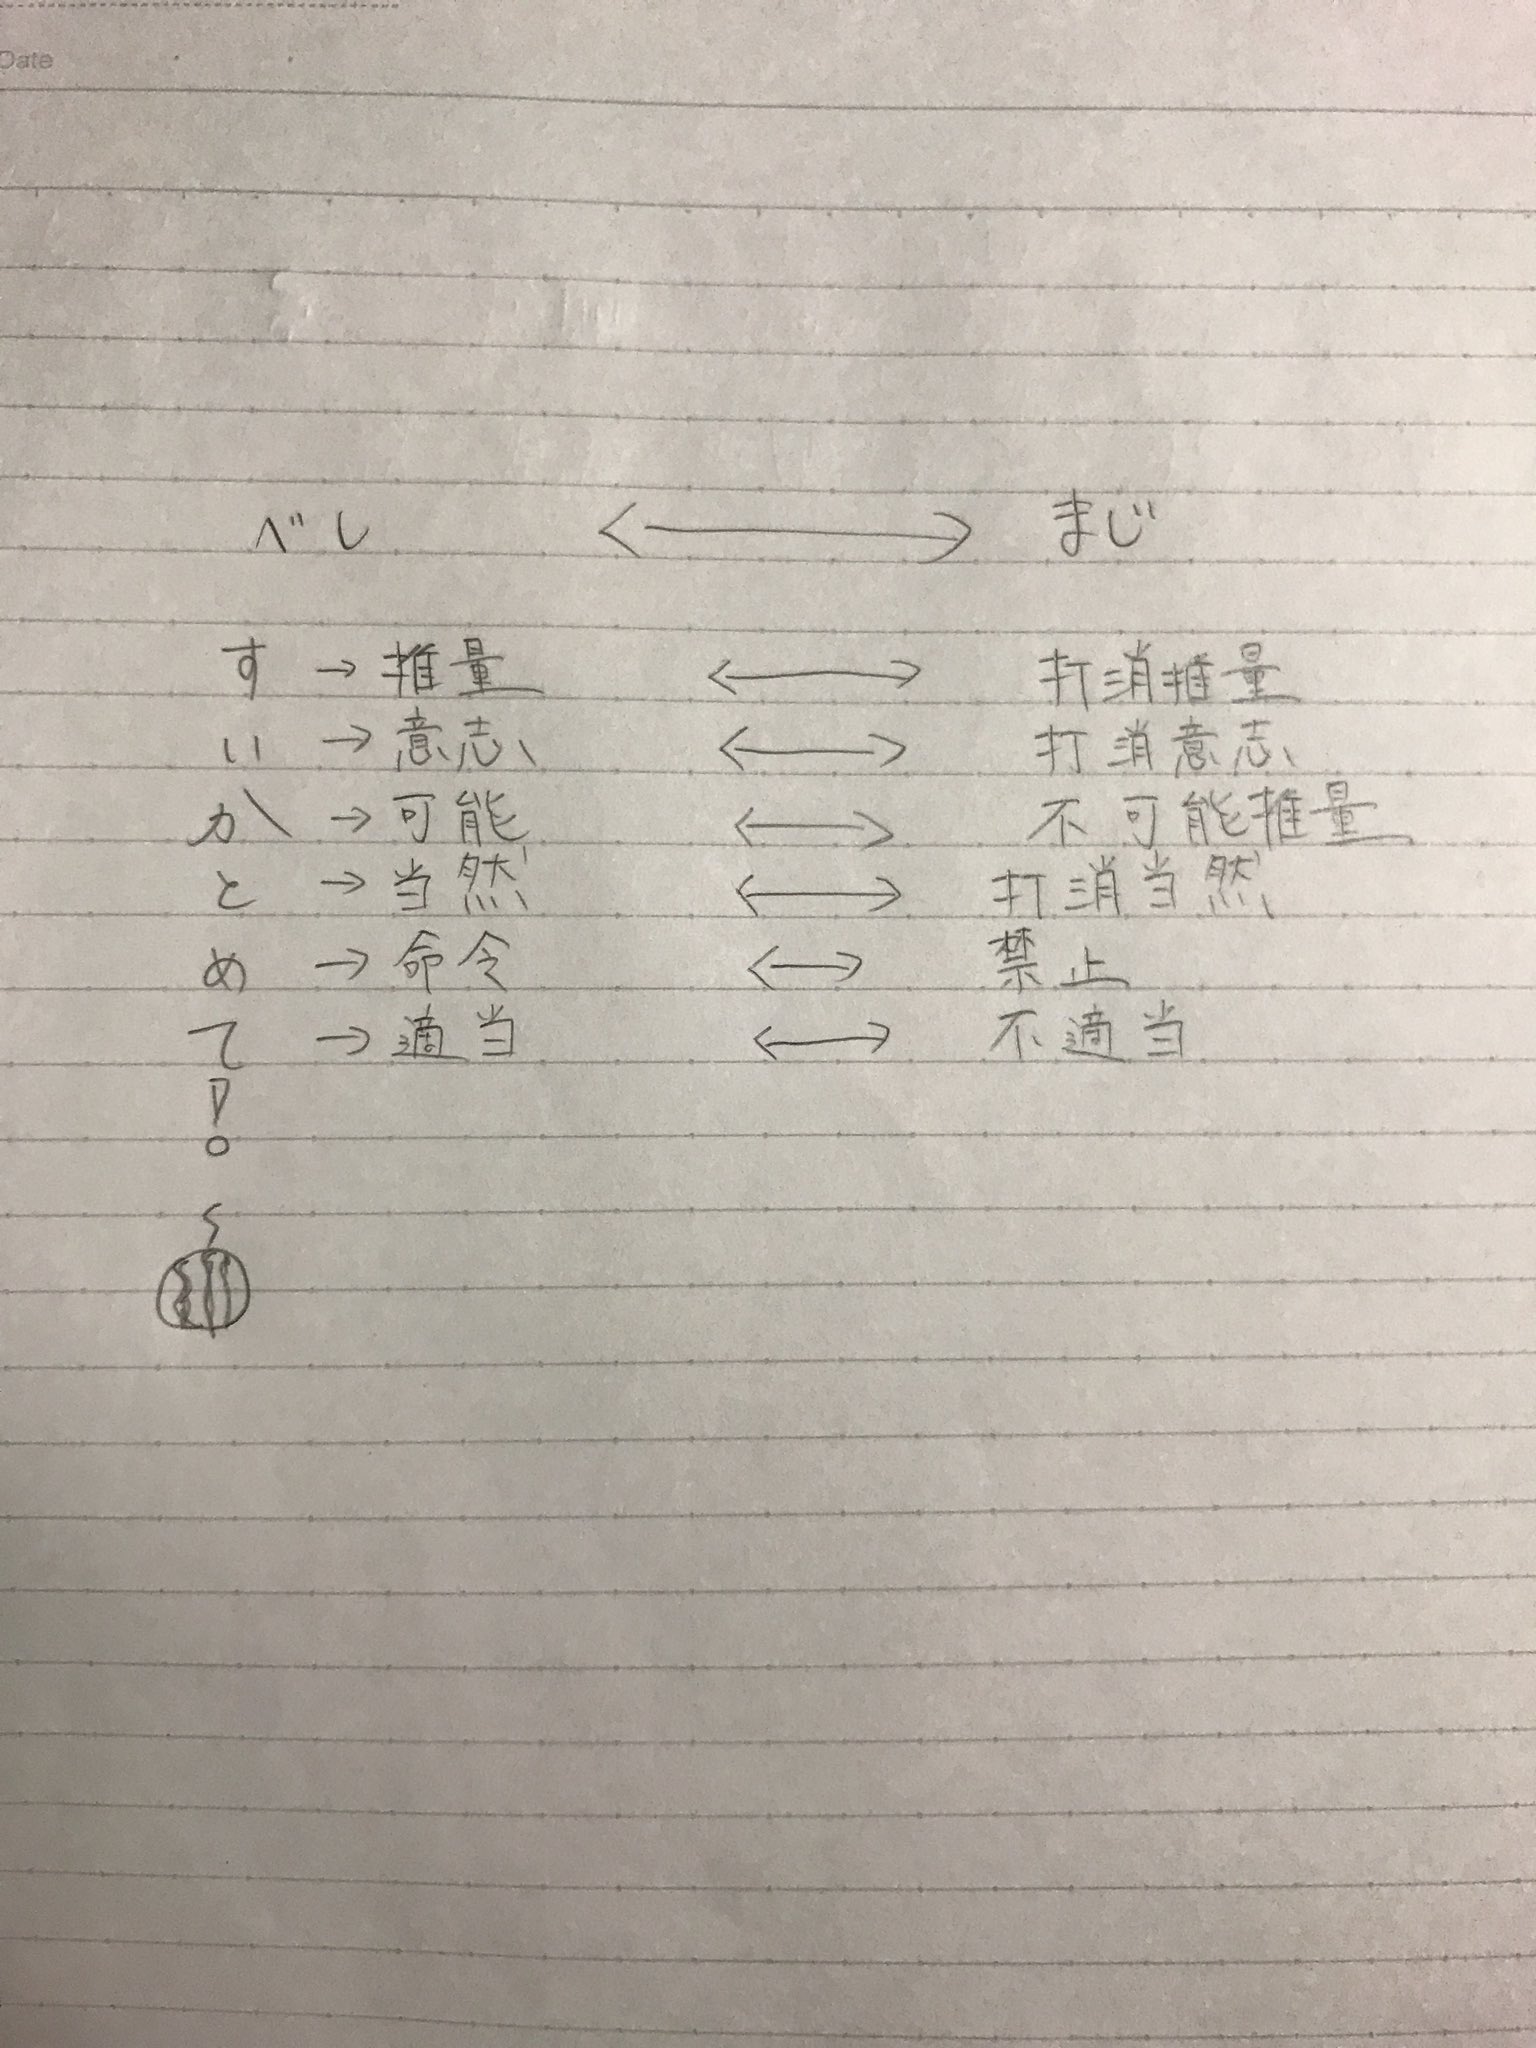 Date
べし ⟷ まじ
す → 推量 ⟷ 打消推量
い → 意志 ⟷ 打消意志
か → 可能 ⟷ 不可能推量
と → 当然 ⟷ 打消当然
め → 命令 ⟷ 禁止
て → 適当 ⟷ 不適当
!